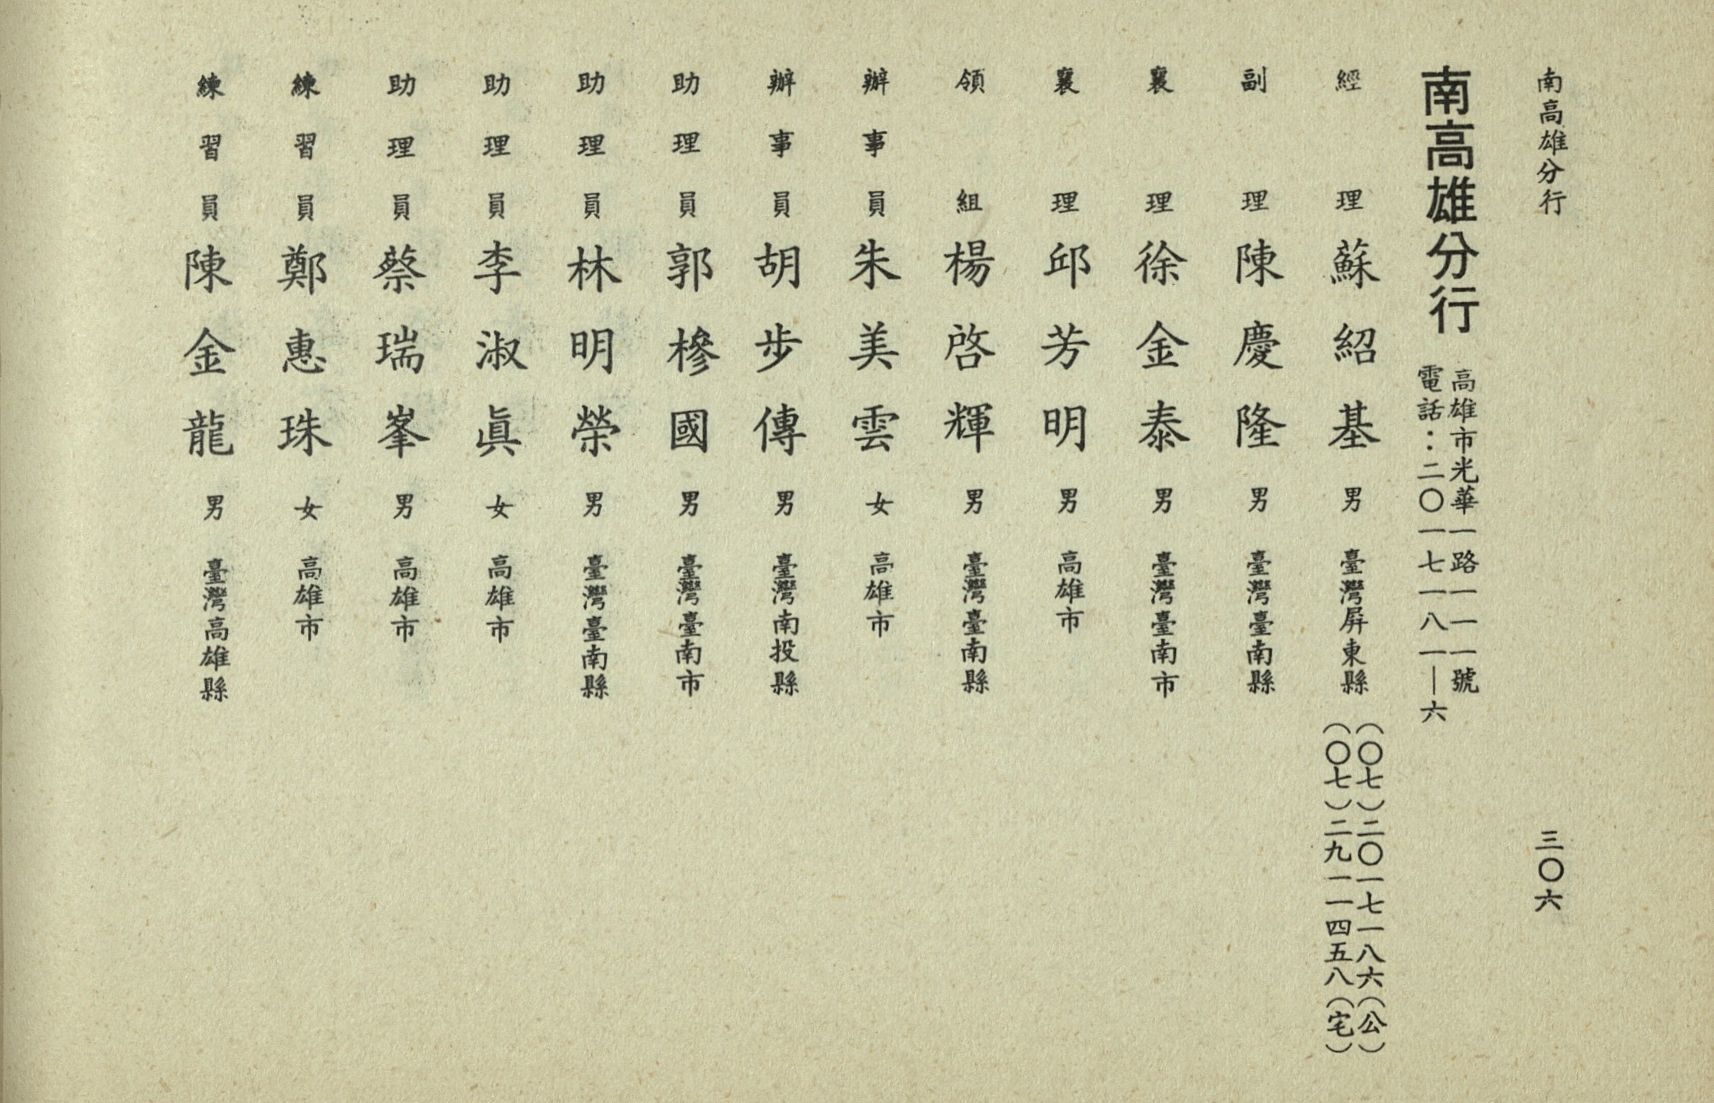 南高雄分行
三〇六
南高雄分行
高雄市光華一路一一一號
電話：二〇一七一八一—六
經理 蘇紹基 男 臺灣屏東縣
（〇七）二〇一七一八六（公）
（〇七）二九一一四五八（宅）
副理 陳慶隆 男 臺灣臺南縣
襄理 徐金泰 男 臺灣臺南市
襄理 邱芳明 男 高雄市
領組 楊啓輝 男 臺灣臺南縣
辦事員 朱美雲 女 高雄市
辦事員 胡步傳 男 臺灣南投縣
助理員 郭槮國 男 臺灣臺南市
助理員 林明榮 男 臺灣臺南縣
助理員 李淑眞 女 高雄市
助理員 蔡瑞峯 男 高雄市
練習員 鄭惠珠 女 高雄市
練習員 陳金龍 男 臺灣高雄縣